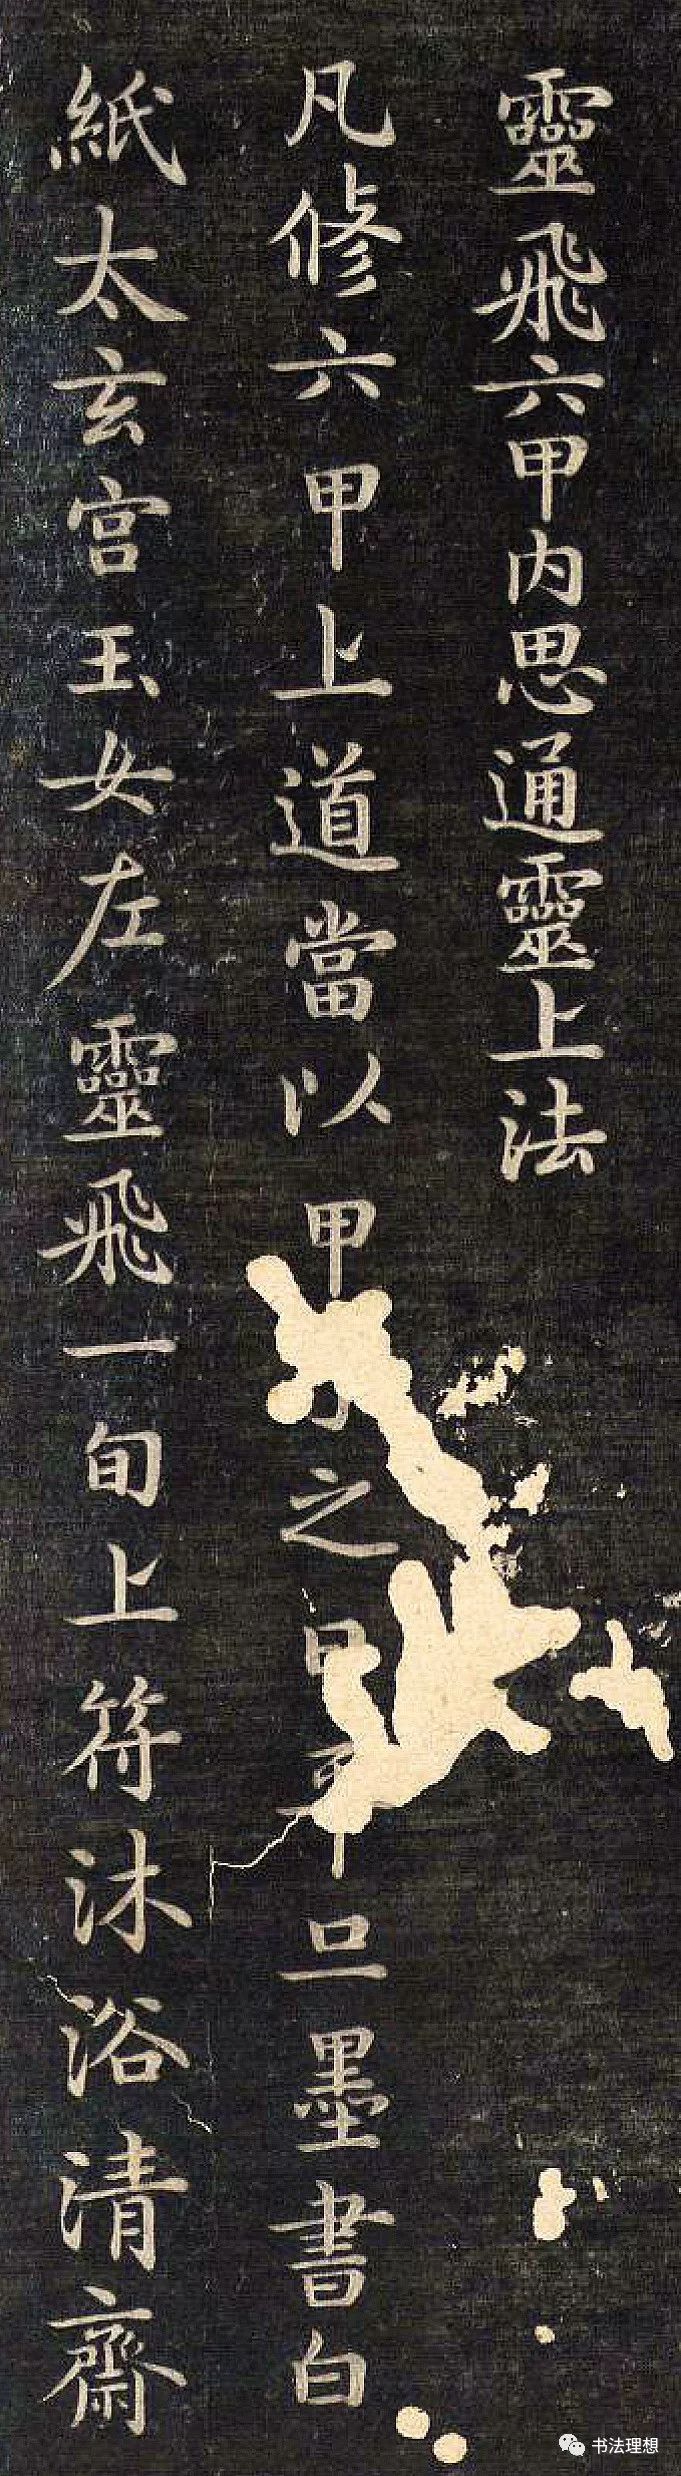 靈飛六甲内思通靈上法
凡修六甲上道當以甲子之日平旦墨書白
紙太玄宫玉女左靈飛一旬上符沐浴清齋
书法理想